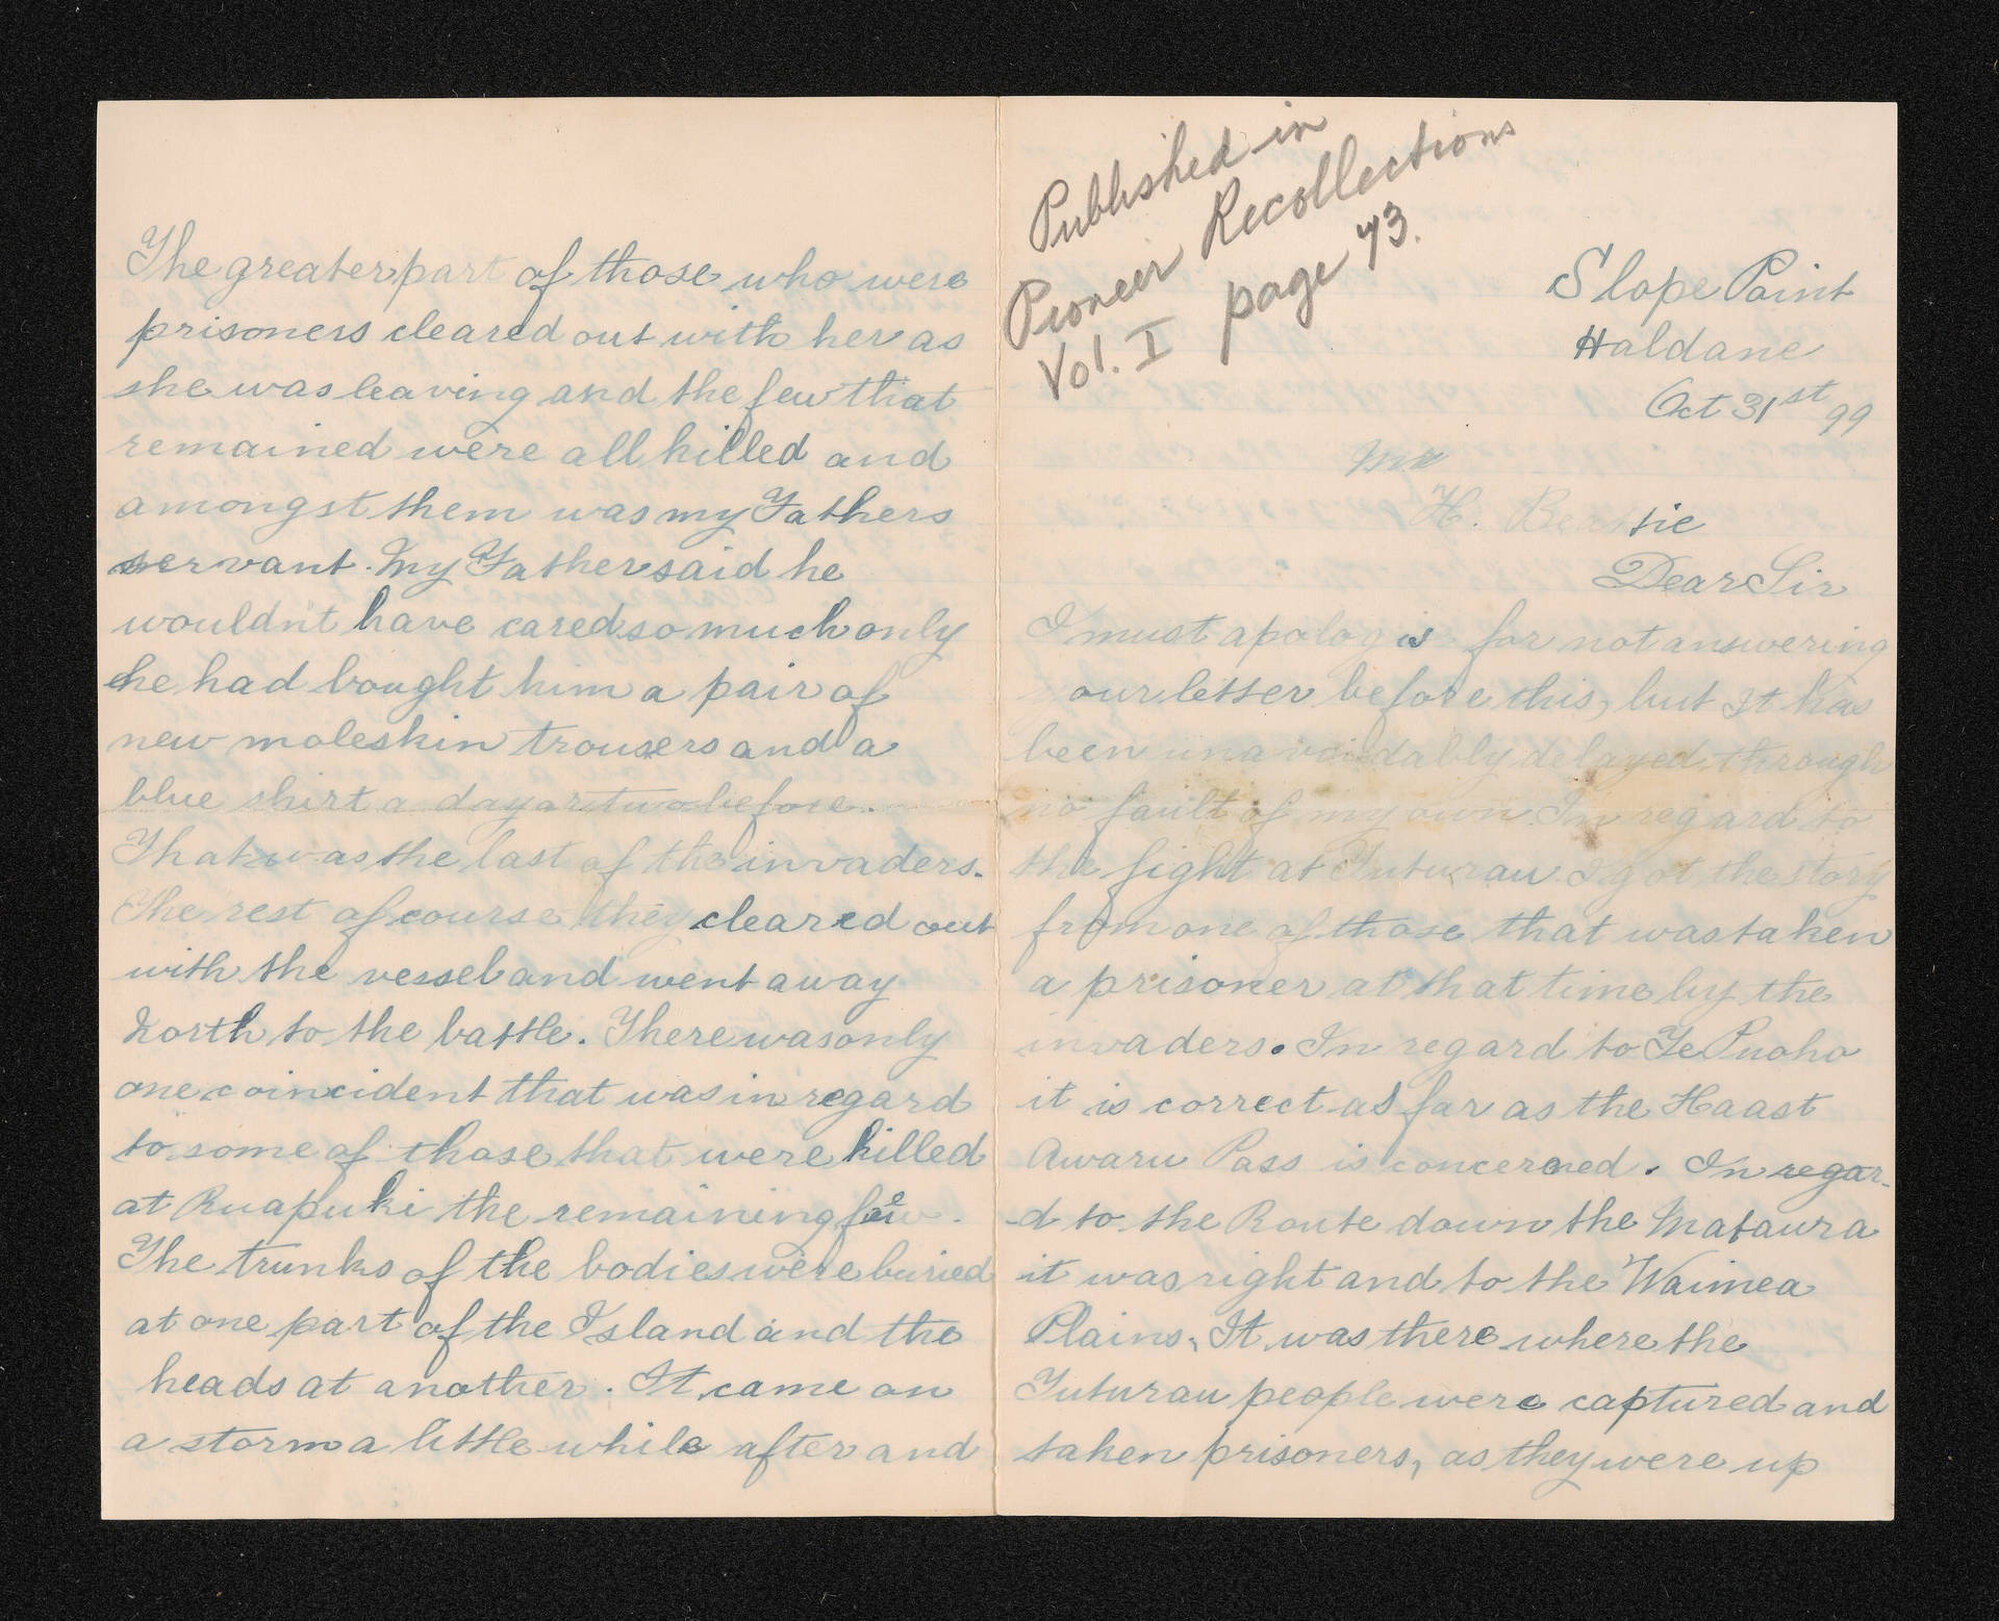 The greater part of those who were
prisoners cleared out with her as
she was leaving and the few that
remained were all killed and
amongst them was my Fathers
servant. My Father said he
wouldn't have cared so much only
he had bought him a pair of
new moleskin trousers and a
blue shirt a day or two before.
That was the last of the invaders.
The rest of course they cleared out
with the vessel and went away
North to the battle. There was only
one coincident that was in regard
to some of those that were killed
at Ruapuki the remaining few.
The trunks of the bodies were buried
at one part of the Island and the
heads at another. It came on
a storm a little while after and
Published in
Pioneer Recollections
Vol. I page 73.
Slope Point
Haldane
Oct 31st 99
Mr
H. Beattie
Dear Sir
I must apologis for not answering
our letter before this, but It has
been unavoidably delayed through
no fault of my own In regard to
the fight at Tuturau I got the story
from one of those that was taken
a prisoner at that time by the
invaders. In regard to Te Puoho
it is correct as far as the Haast
Awaru Pass is concerned. In regar-
d to the Route down the Mataura
it was right and to the Waimea
Plains, It was there where the
Tuturau people were captured and
taken prisoners, as they were up